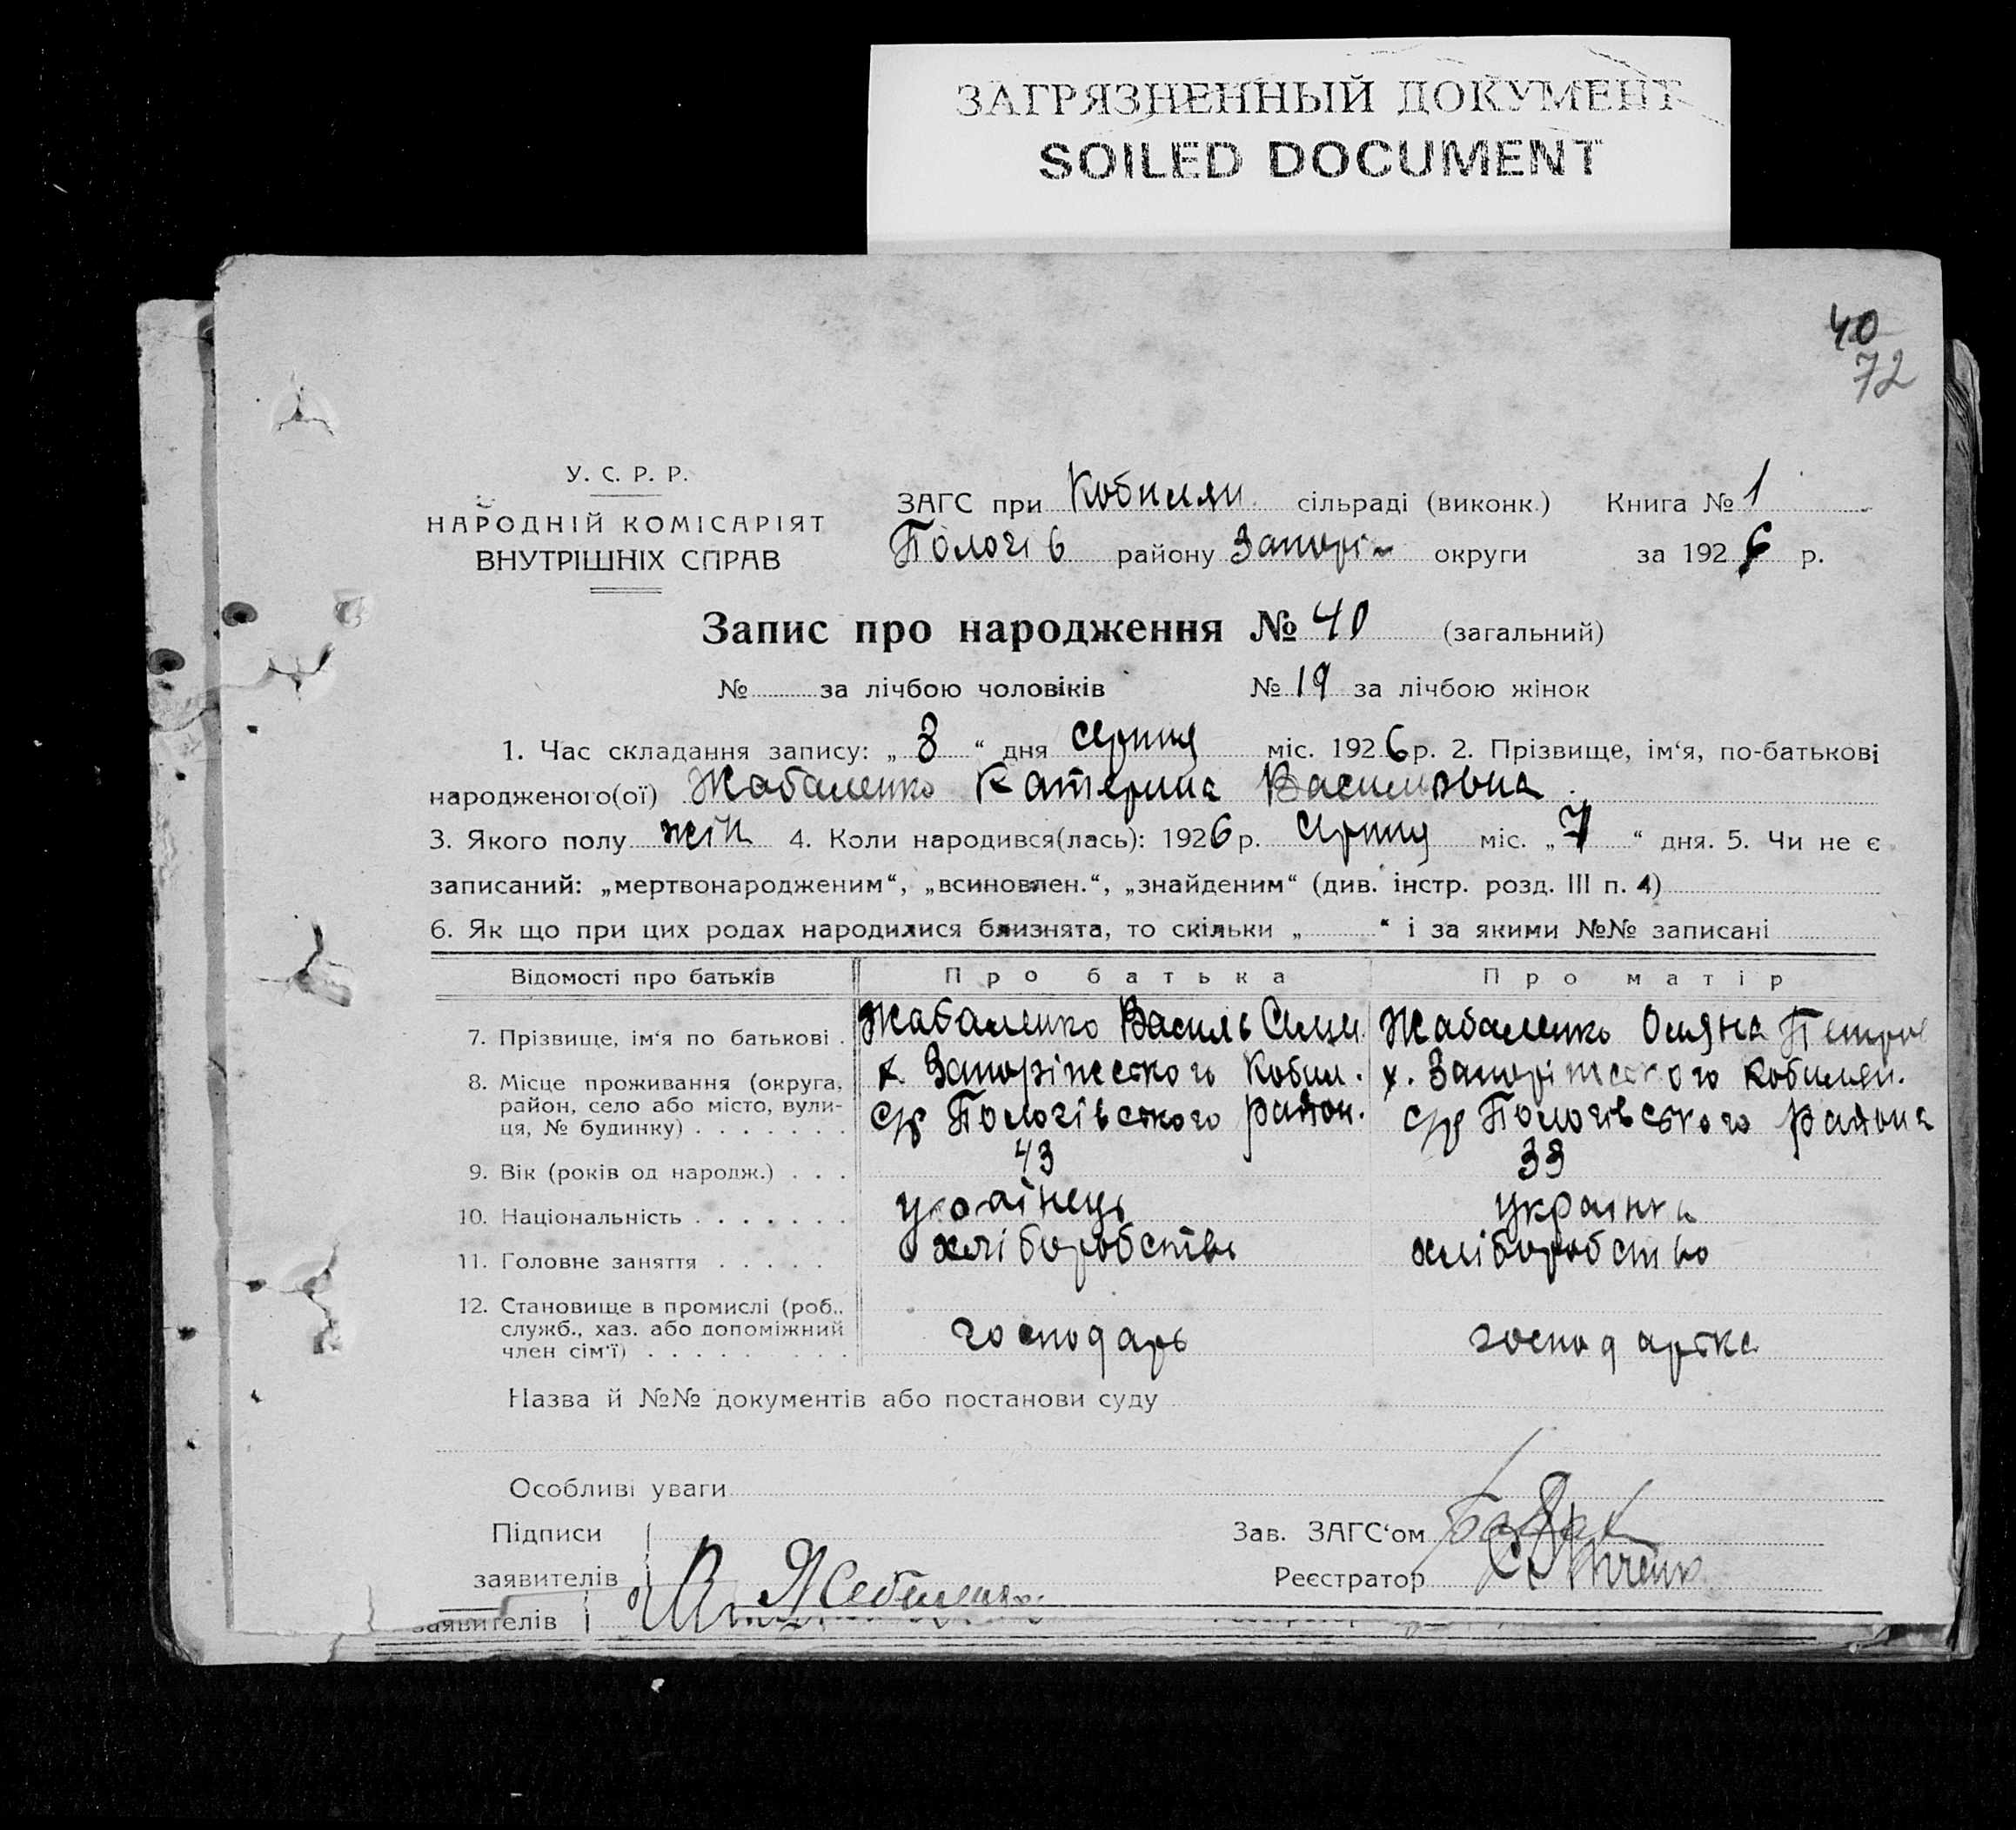 ЗАГРЯЗНЕННЫЙ ДОКУМЕНТ
SOILED DOCUMENT
40
72
У. С. Р. Р.
НАРОДНІЙ КОМІСАРІЯТ
ВНУТРІШНІХ СПРАВ
ЗАГС при Кобилян. сільраді (виконк.) Книга № 1
Пологів району Запоріж округи за 1926 р.
Запис про народження № 40 (загальний)
№ за лічбою чоловіків № 19 за лічбою жінок
1. Час складання запису: „ 8 “ дня серпня міс. 1926 р. 2. Прізвище, ім‘я, по-батькові
народженого(ої) Жабаленко Катерина Василивна
3. Якого полу жін 4. Коли народився(лась): 1926 р. серпня міс. „ 7 “ дня. 5. Чи не є
записаний: „мертвонародженим“, „всиновлен.“, „знайденим“ (див. інстр. розд. III п. 4)
6. Як що при цих родах народилися близнята, то скільки „ “ і за якими №№ записані
Відомості про батьків Про батька Про матір
7. Прізвище, ім‘я по батькові . Жабаленко Василь Жабаленко Оляна Петров
8. Місце проживання (округа, х. Запоріжсткого Кобил. х. Запоріжсткого Кобилян.
район, село або місто, вули- с/р Пологівсткого район. с/р Пологівсткого района
ця, № будинку) . . . . . . .
9. Вік (років од народж.) . . . 43 33
10. Національність . . . . . . . українець українка
11. Головне заняття . . . . . хліборобство хліборобство
12. Становище в промислі (роб.,
служб., хаз. або допоміжний господарь господарка
член сім‘ї) . . . . . . . . .
Назва й №№ документів або постанови суду
Особливі уваги
Підписи Зав. ЗАГС‘ом
заявителів Реєстратор
заявителів